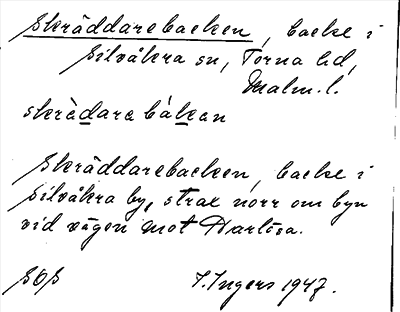 Skräddarebacken, backe i
Silvåkra sn, Torna hd,
Malm. l.
skrädare båkan
Skräddarebacken, backe i
Silvåkra by, strax norr om byn
vid vägen mot Harlösa.
I. Ingers 1947.